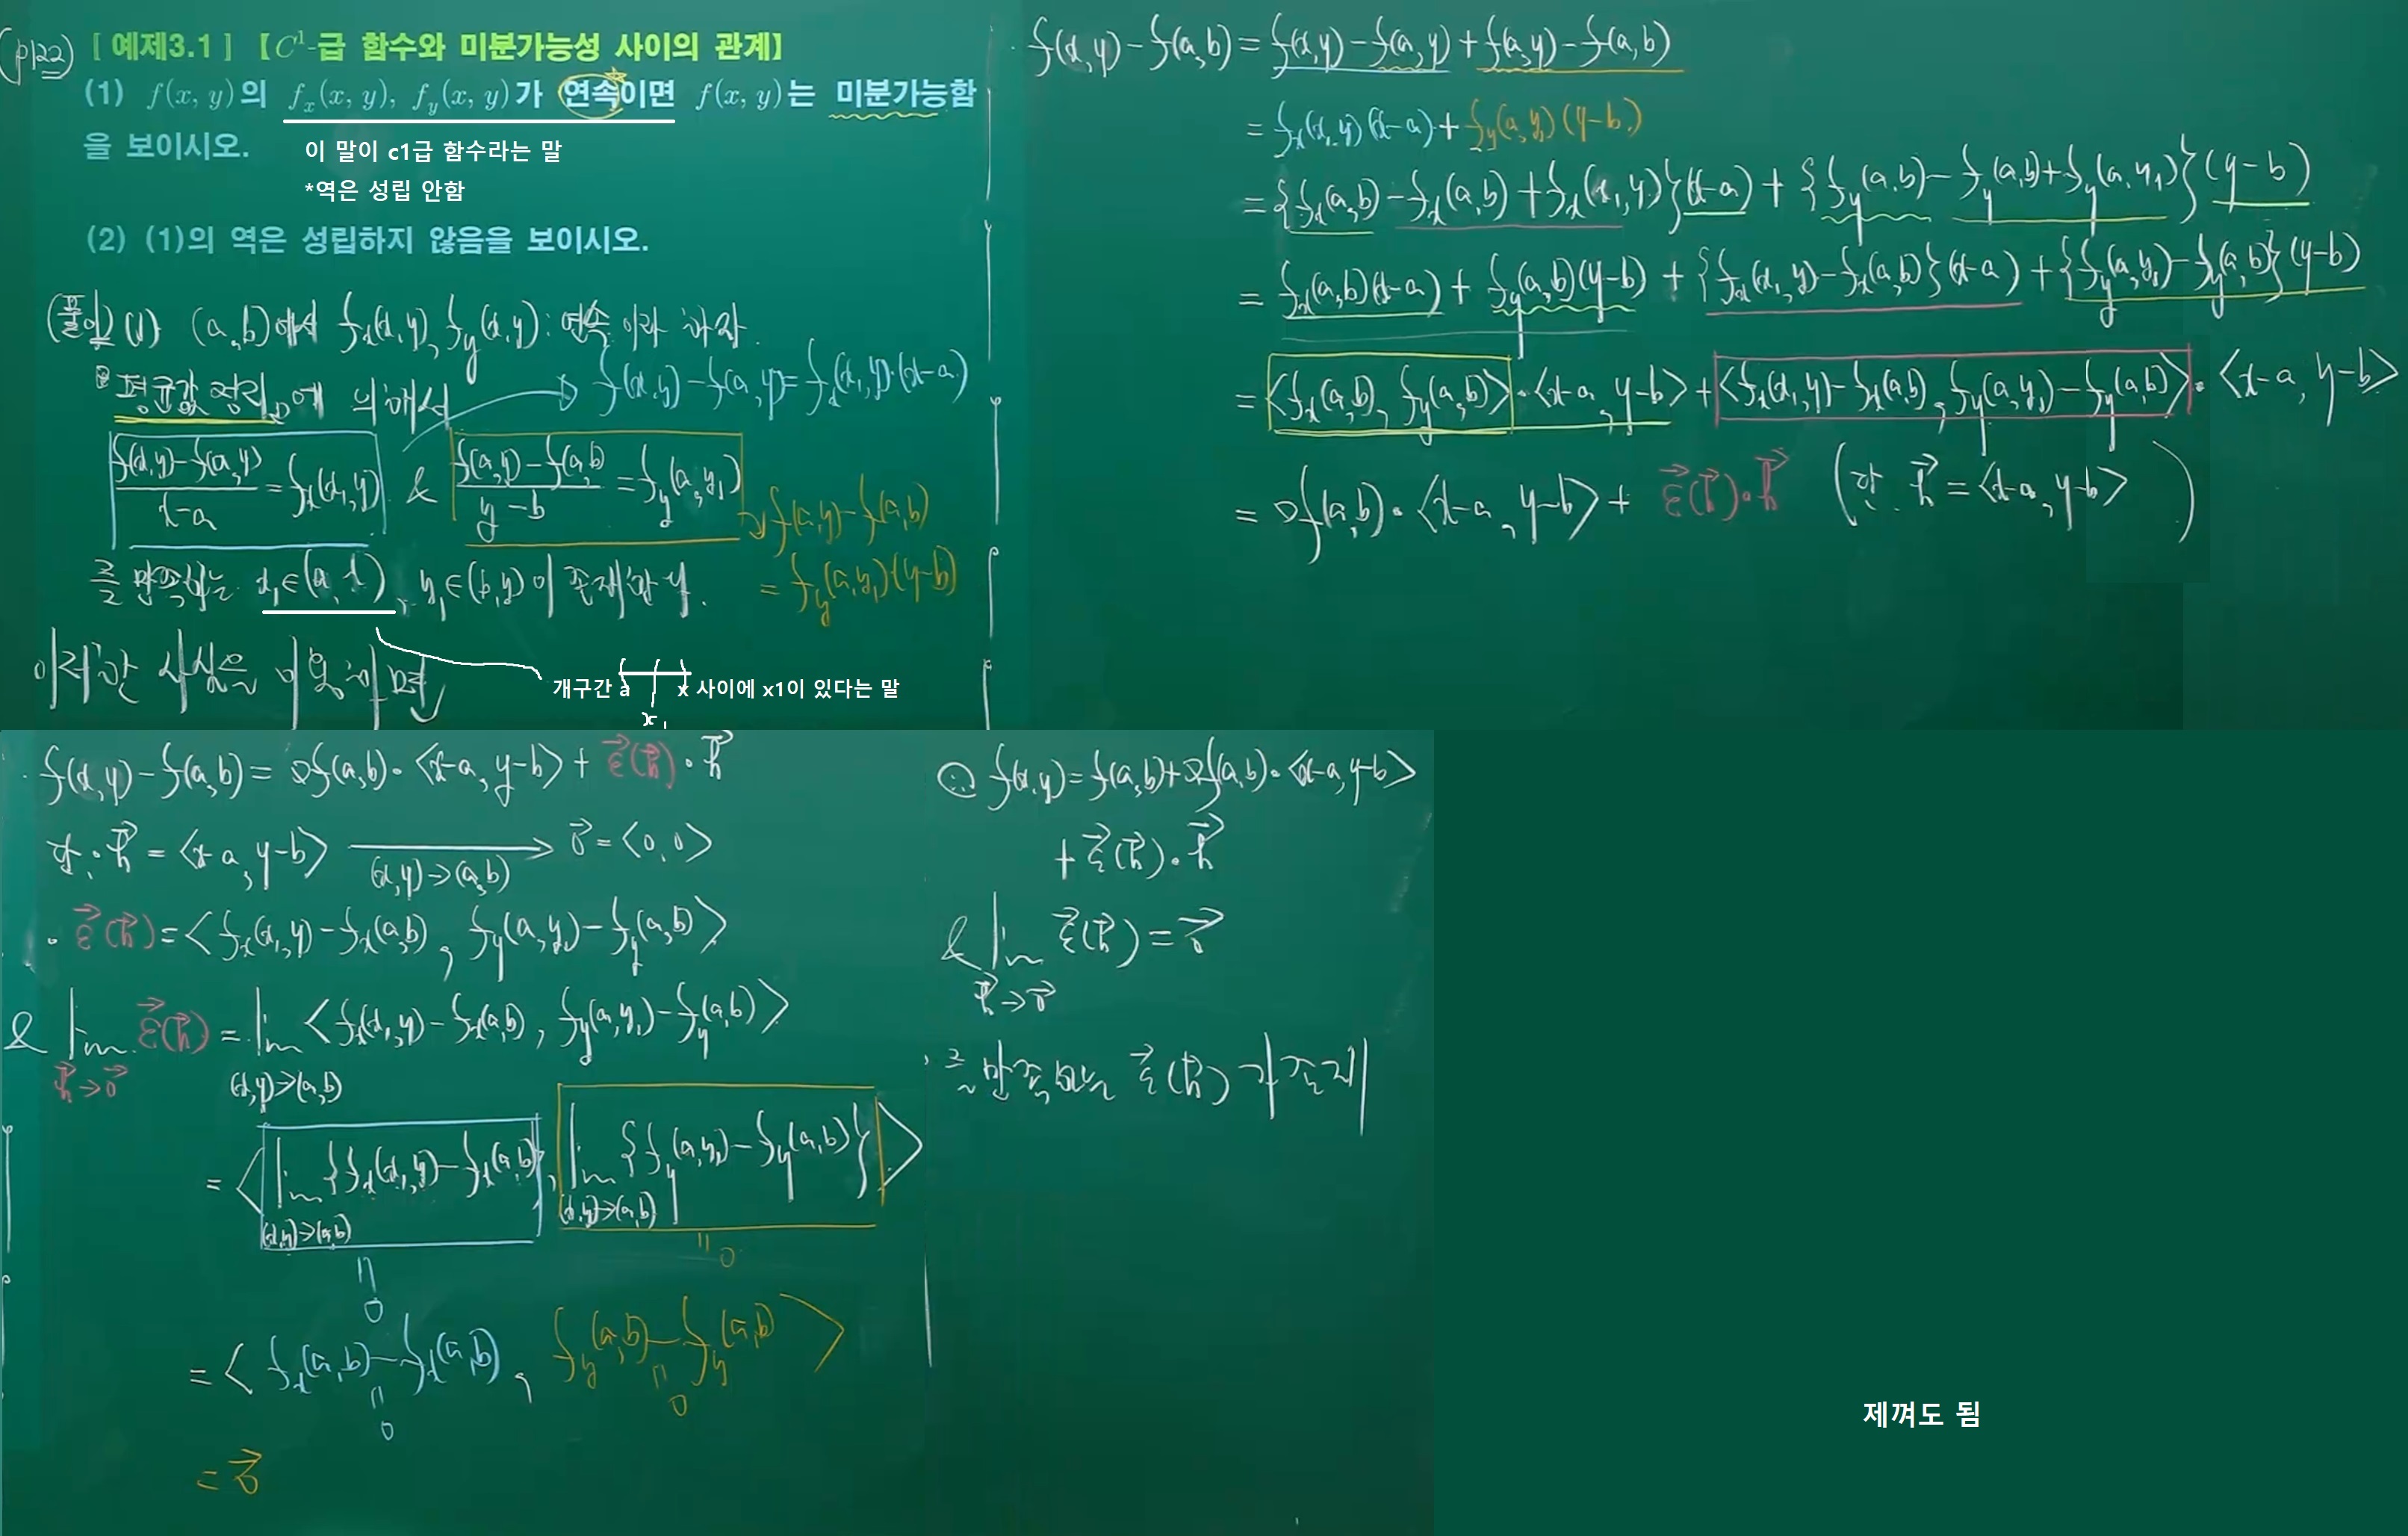 (p122) [ 예제3.1 ] 【 C¹-급 함수와 미분가능성 사이의 관계】
(1) f(x, y)의 f_x(x, y), f_y(x, y)가 연속이면 f(x, y)는 미분가능함
을 보이시오.
이 말이 c1급 함수라는 말
*역은 성립 안함
(2) (1)의 역은 성립하지 않음을 보이시오.
(풀이) (1) (a, b)에서 f_x(x, y), f_y(x, y) : 연속 이라 하자.
평균값 정리에 의해서
f(x, y) - f(a, y) = f_x(x₁, y)·(x-a)
(f(x, y) - f(a, y))/(x-a) = f_x(x₁, y) & (f(a, y) - f(a, b))/(y-b) = f_y(a, y₁)
f(a, y) - f(a, b)
= f_y(a, y₁)(y-b)
를 만족하는 x₁∈(a, x), y₁∈(b, y)이 존재한다.
개구간 a x 사이에 x1이 있다는 말
x₁
이러한 사실을 이용하면
f(x, y) - f(a, b) = f(x, y) - f(a, y) + f(a, y) - f(a, b)
= f_x(x₁, y)(x-a) + f_y(a, y₁)(y-b)
= {f_x(a, b) - f_x(a, b) + f_x(x₁, y)}(x-a) + {f_y(a, b) - f_y(a, b) + f_y(a, y₁)}(y-b)
= f_x(a, b)(x-a) + f_y(a, b)(y-b) + {f_x(x₁, y) - f_x(a, b)}(x-a) + {f_y(a, y₁) - f_y(a, b)}(y-b)
= <f_x(a, b), f_y(a, b)>·<x-a, y-b> + <f_x(x₁, y) - f_x(a, b), f_y(a, y₁) - f_y(a, b)>·<x-a, y-b>
= ∇f(a, b)·<x-a, y-b> + ε⃗(h⃗)·h⃗ (단, h⃗ = <x-a, y-b>)
f(x, y) - f(a, b) = ∇f(a, b)·<x-a, y-b> + ε⃗(h⃗)·h⃗
단, h⃗ = <x-a, y-b> ⟶ 0⃗ = <0, 0>
(x, y)→(a, b)
· ε⃗(h⃗) = <f_x(x₁, y) - f_x(a, b), f_y(a, y₁) - f_y(a, b)>
& lim ε⃗(h⃗) = lim <f_x(x₁, y) - f_x(a, b), f_y(a, y₁) - f_y(a, b)>
h⃗→0⃗ (x, y)→(a, b)
= <lim {f_x(x₁, y) - f_x(a, b)}, lim {f_y(a, y₁) - f_y(a, b)}>
(x, y)→(a, b) (x, y)→(a, b)
= 0 = 0
= <f_x(a, b) - f_x(a, b), f_y(a, b) - f_y(a, b)>
= 0 = 0
= 0⃗
∴ f(x, y) = f(a, b) + ∇f(a, b)·<x-a, y-b>
+ ε⃗(h⃗)·h⃗
& lim ε⃗(h⃗) = 0⃗
h⃗→0⃗
를 만족하는 ε⃗(h⃗)가 존재
제껴도 됨